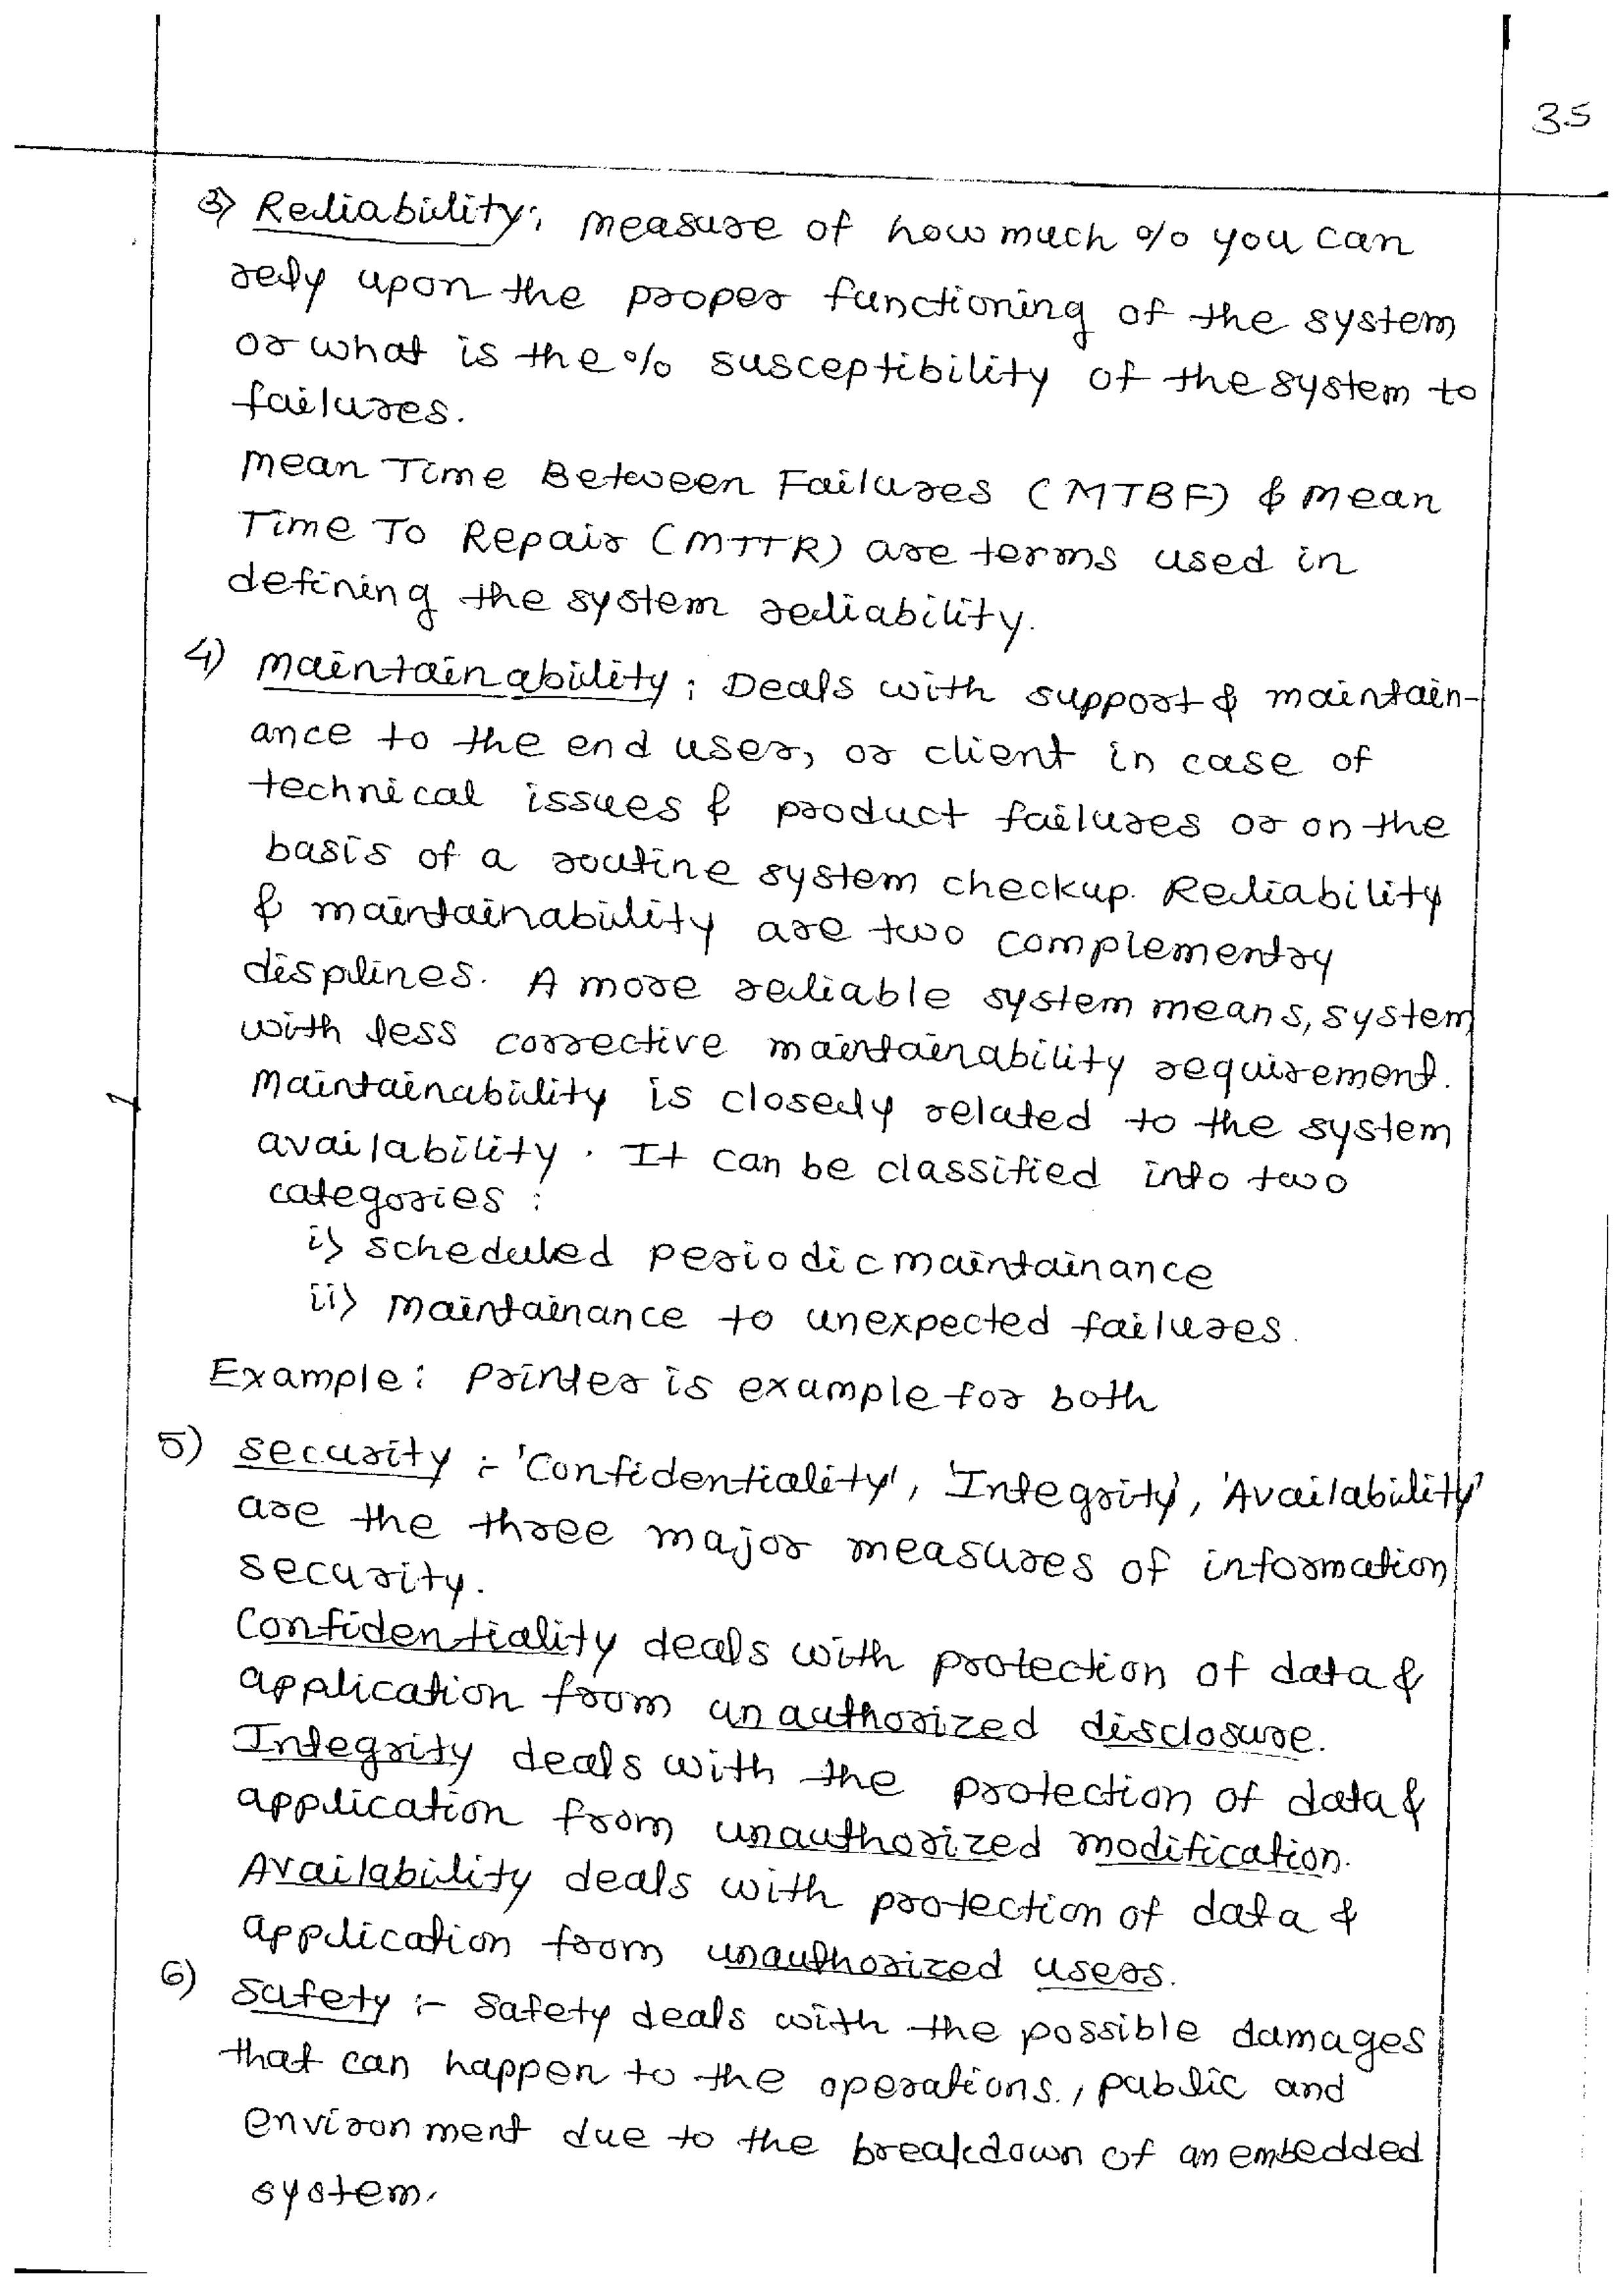 35
3) Reliability: measure of how much % you can
rely upon the proper functioning of the system
or what is the % susceptibility of the system to
failures.
Mean Time Between Failures (MTBF) & Mean
Time To Repair (MTTR) are terms used in
defining the system reliability.
4) Maintainability: Deals with support & maintain-
ance to the end user, or client in case of
technical issues & product failures or on the
basis of a routine system checkup. Reliability
& maintainability are two complementry
displines. A more reliable system means, system
with less corrective maintainability requirement.
Maintainability is closely related to the system
availability. It can be classified into two
categories:
i) scheduled periodic maintainance
ii) Maintainance to unexpected failures.
Example: Printer is example for both
5) security :- 'Confidentiality', 'Integrity', 'Availability'
are the three major measures of information
security.
Confidentiality deals with protection of data &
application from unauthorized disclosure.
Integrity deals with the protection of data &
application from unauthorized modification.
Availability deals with protection of data &
application from unauthorized users.
6) Safety :- Safety deals with the possible damages
that can happen to the operations., public and
environment due to the breakdown of an embedded
system.